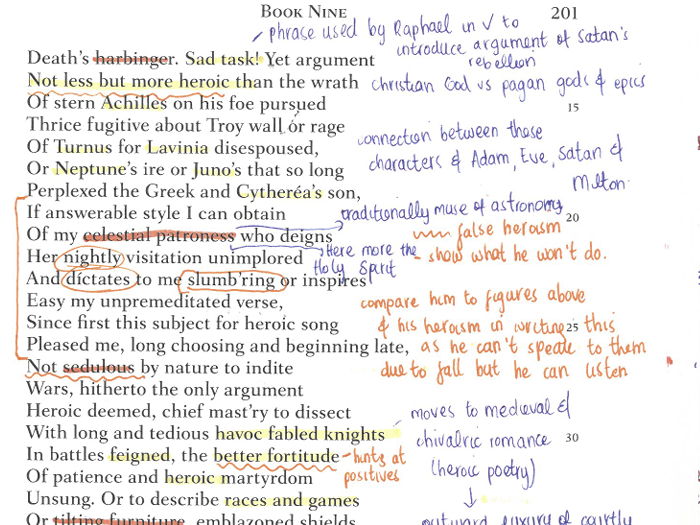 BOOK NINE 201
phrase used by Raphael in V to
introduce argument of Satan's
rebellion
Death's harbinger. Sad task! Yet argument
Not less but more heroic than the wrath
christian God vs pagan gods & epics
Of stern Achilles on his foe pursued
15
Thrice fugitive about Troy wall or rage
Of Turnus for Lavinia disespoused,
connection between these
Or Neptune's ire or Juno's that so long
characters & Adam, Eve, Satan &
Milton.
Perplexed the Greek and Cytheréa's son,
If answerable style I can obtain
traditionally muse of astronomy
20
Of my celestial patroness who deigns
false heroism
Her nightly visitation unimplored
Here more the
Holy Spirit
- show what he won't do.
And dictates to me slumb'ring or inspires
Easy my unpremeditated verse,
compare him to figures above
Since first this subject for heroic song
& his heroism in writing this
25
Pleased me, long choosing and beginning late,
as he can't speak to them
Not sedulous by nature to indite
due to fall but he can listen
Wars, hitherto the only argument
Heroic deemed, chief mast'ry to dissect
moves to medieval &
With long and tedious havoc fabled knights
chivalric romance
30
In battles feigned, the better fortitude
- hints at
positives
(heroic poetry)
Of patience and heroic martyrdom
Unsung. Or to describe races and games
Or tilting furniture, emblazoned shields
outward luxury of courtly